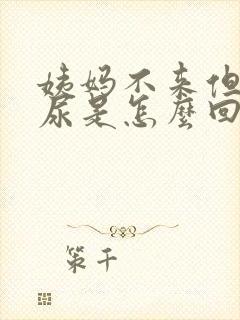 姨妈不来但
尿是怎麼回
策千